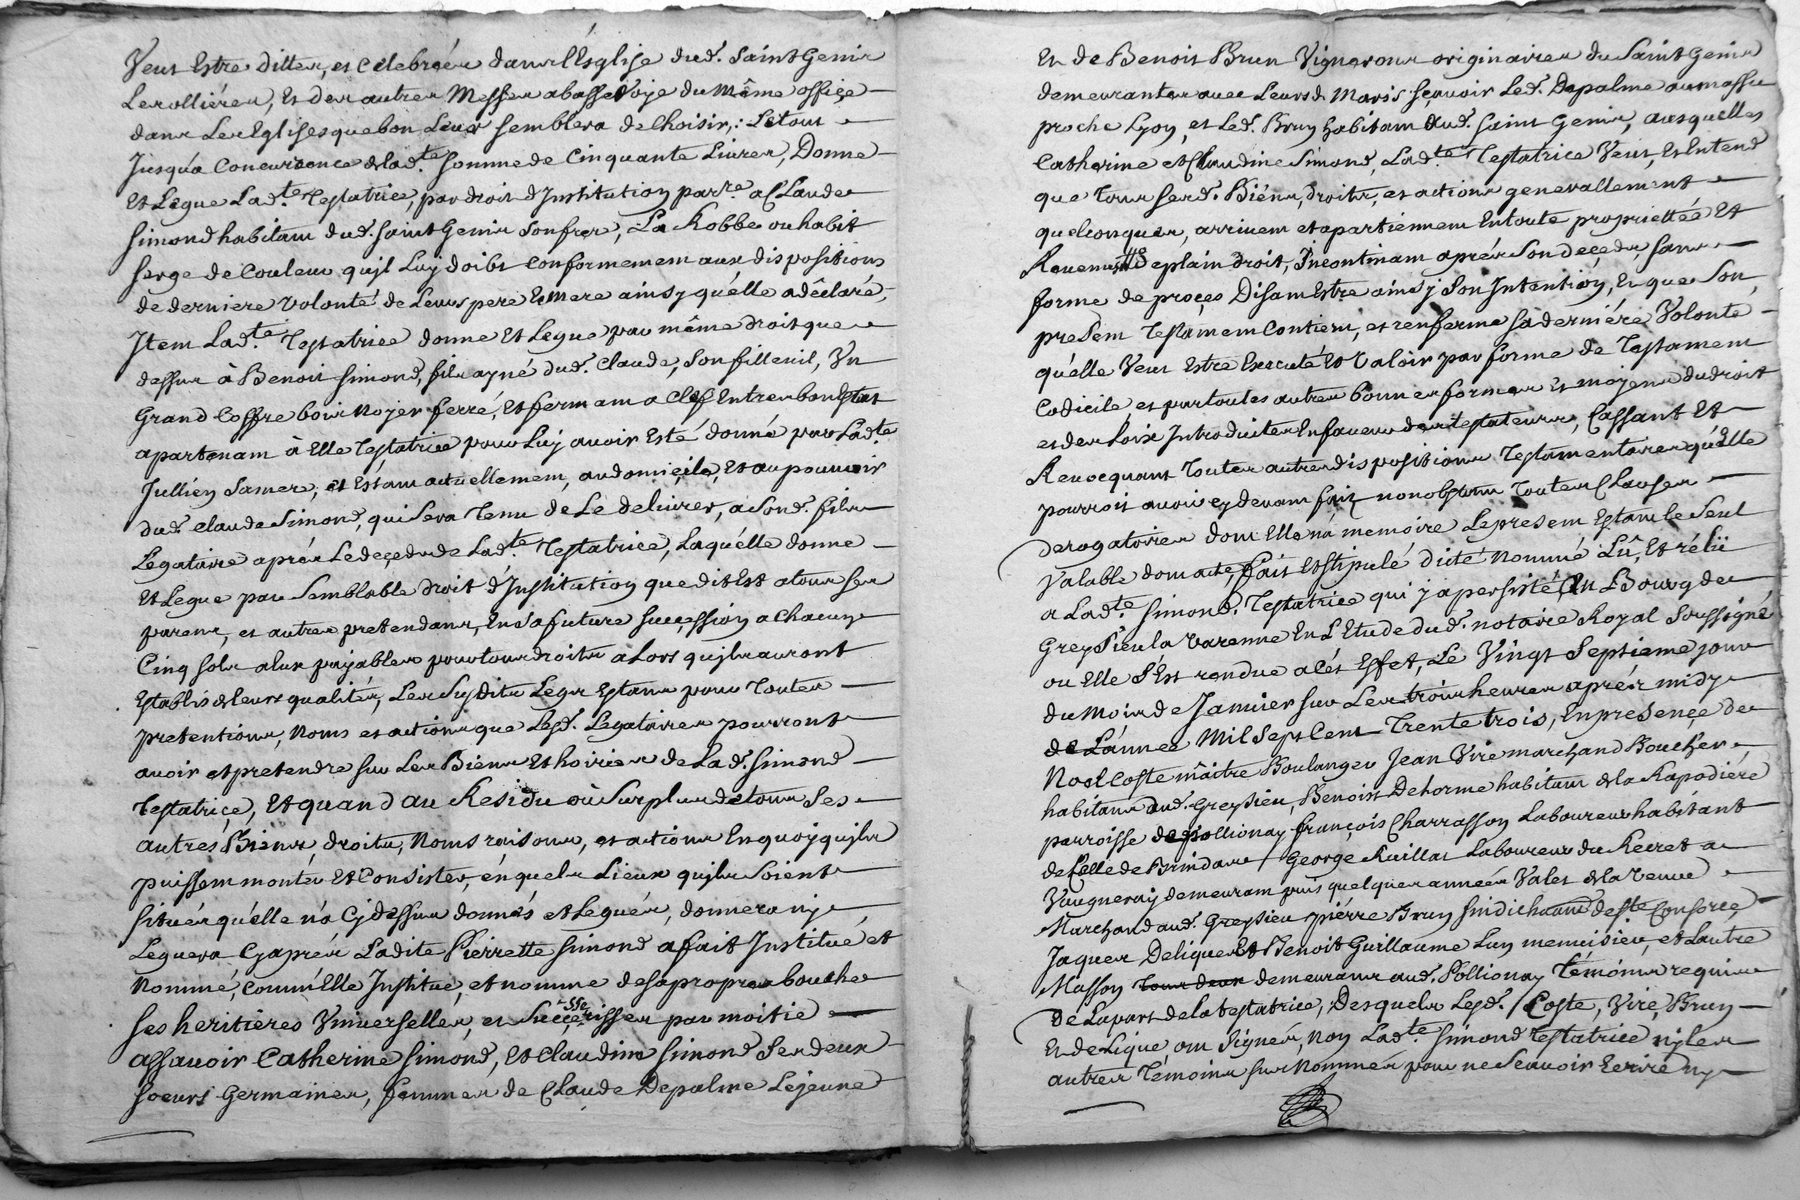 Veut Estre dittes, et Celebrées dans l'Esglise dud. Saint Genis
Lerollières, Et des autres Messes a basse Voye du Même office
dans Les Eglises que bon Leur semblera de Choisir,: Le tout
Jusqu'a Concurrence de lad.te somme de Cinquante Livres, Donne
Et Legue Lad.te Testatrice, par droit d'Institution par.re a Claude
Simond habitant dud. Saint Genis son frere, La Robbe ou habit
serge de Couleur qu'jl Luy doibt Conformement aux dispositions
de derniere Volonté de Leurs pere Et Mere ainsy qu'elle a déclaré,
Jtem Lad.te Testatrice donne Et Legue par même droit que
dessus à Benoit Simond, fils ayné dud. Claude, son filleuil, Vn
Grand Coffre bois Noyer ferré, Et fermant a Clef Entres bon Estat
apartenant à Elle Testatrice pour Luy avoir Esté donné par Lad.te
Jullien sa mere, et Estant actuellement, au domicile, Et au pouvoir
dud. Claude Simond, qui sera Tenu de Le delivrer, a Sond. fils
Legataire aprés Le deçeds de Lad.te Testatrice, Laqu'elle donne
Et Legue par Semblable droit d'Institution que dit Est a tous ses
parens, et autres pretendans, En Sa future succession a Chacun
Cinq sols a Eux payables pour tous droits a Lors qu'jls auront
Establis de leurs qualités, Les Susdits Legs Estans pour Toutes
pretentions, Noms et actions que Lesd. Legataires pourront
avoir et pretendre sur Les Biens Et hoiries de La d. Simond
Testatrice, Et quand au Residu où Surplus de tous Ses
autres Biens, droits, Noms raisons, et actions En quoy qu'jls
puissent monter Et Consister, en quels Lieux qu'jls Soient
situés qu'elle n'a Cy dessus donnés et Legués, donnera ny
Leguera Cy aprés Ladite Pierrette Simond a fait Institué et
Nommé, Comm'Elle Institue, et nomme de sa propre bouche
ses heritières Vniverselles, et par moitié
assavoir Catherine Simond, Et Claudine Simond Ses deux
soeurs Germaines, femmes de Claude Depalme Lejeune
Et de Benoit Brun Vignerons originaires du Saint Genis
demeurantes avec Leursd. Maris sçavoir Led. Depalme au massu
proche Lyon, et Led. Brun habitant aud. Saint Genis, ausquelles
Catherine et Claudine Simond, Lad.te Testatrice Veut, Et Entend
que Tous sesd. Biéns, droits, et actions generallement
quelconques, arrivent et apartiennent En toute proprietté Et
Revenus de plain droit, Jncontinant aprés Son deçeds, sans
forme de proçes Disant Estre ainsy Son Intention, Et que Son
present Testament Contient, et renferme sa derniére Volonté
qu'elle Veut Estre Executé Et Valoir par forme de Testament
Codicile, et par toutes autres bonnes formes Et moyens du droit
et des Loix Introduites En faveur des testateurs, Cassant Et
Revocquant Toutes autres dispositions Testamentaires qu'Elle
pourroit avoir cy devant fait nonobstant Toutes Clauses
derogatoires dont Elle n'a memoire Le present Estant le Seul
Valable dont acte, fait Et Stipulé dicté Nommé Lû, Et rélû
a Lad.te Simond, Testatrice qui y a persisté En Bourg de
Greysieu la Varenne En L'Etude dud. notaire Royal Soussigné
ou Elle S'Est rendue a cét Effet, Le Vingt Septieme jour
du Mois de Janvier sur Les trois heures aprés midy
de L'année Mil Sept Cent Trente trois, En presençe de
Noel Coste maître Boulanger Jean Viré marchand Boucher
habitans aud. Greysieu, Benoist Delorme habitant de la Rapodiére
parroisse de pollionay françois Charrasson Laboureur habitant
de Brindas / George Ruillat Laboureur du Recret a
Vaugneray demeurant puis quelques années Valet de la Veuve
Marchand aud. Greysieu pierre Brun
Jaques Deligue Et Benoit Guillaume Lun menuisier, et Lautre
Masson Tous deux demeurans aud. Pollionay Témoins requis
de La part de la testatrice, Desquels Lesd. / Coste, Viré, Brun
Et deLigue ont Signés, Non Lad.te Simond Testatrice nyles
autres Témoins sus Nommés pour ne Scavoir Ecrire ny